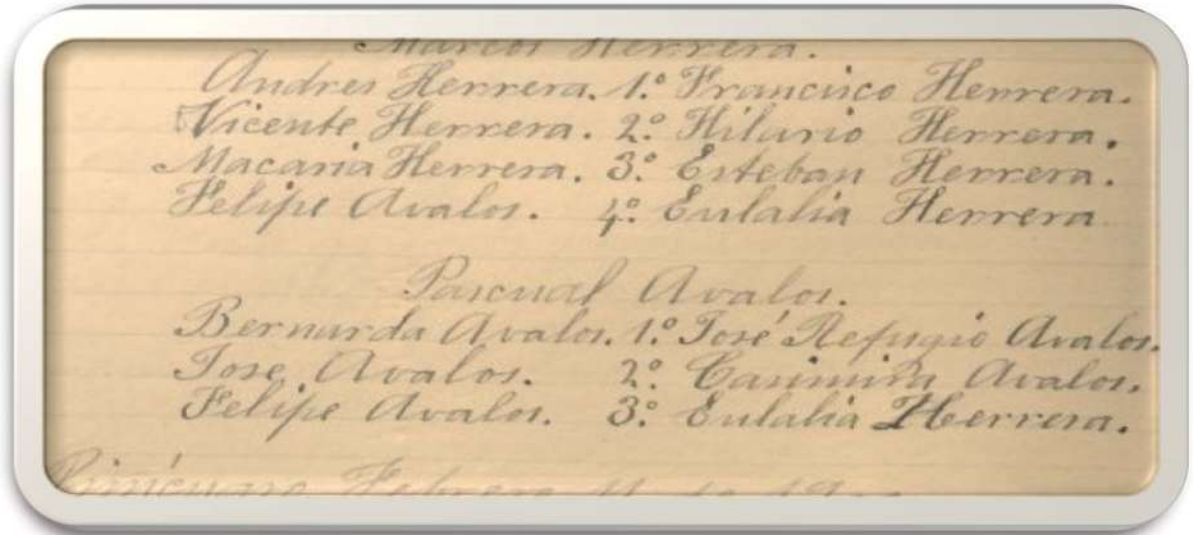 Marcos Herrera.
Andres Herrera. 1.º Francisco Herrera.
Vicente Herrera. 2.º Hilario Herrera.
Macaria Herrera. 3.º Esteban Herrera.
Felipe Avalos. 4.º Eulalia Herrera
Pascual Avalos.
Bernarda Avalos. 1.º José Refugio Avalos.
Jose Avalos. 2.º Casimira Avalos.
Felipe Avalos. 3.º Eulalia Herrera.
Febrero 11 de